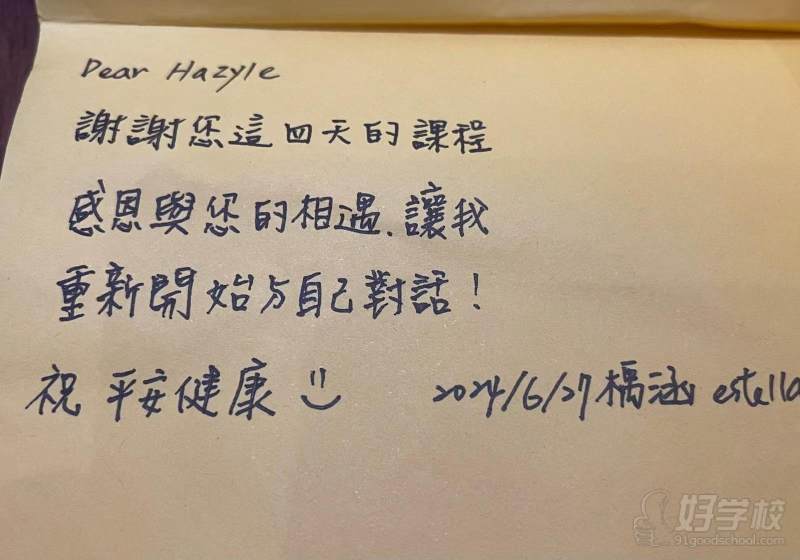 Dear Hazyle
謝謝您這四天的課程
感恩與您的相遇,讓我
重新開始与自己對話!
祝 平安健康
2024/6/27 橘涵 estella
好学校
91goodschool.com